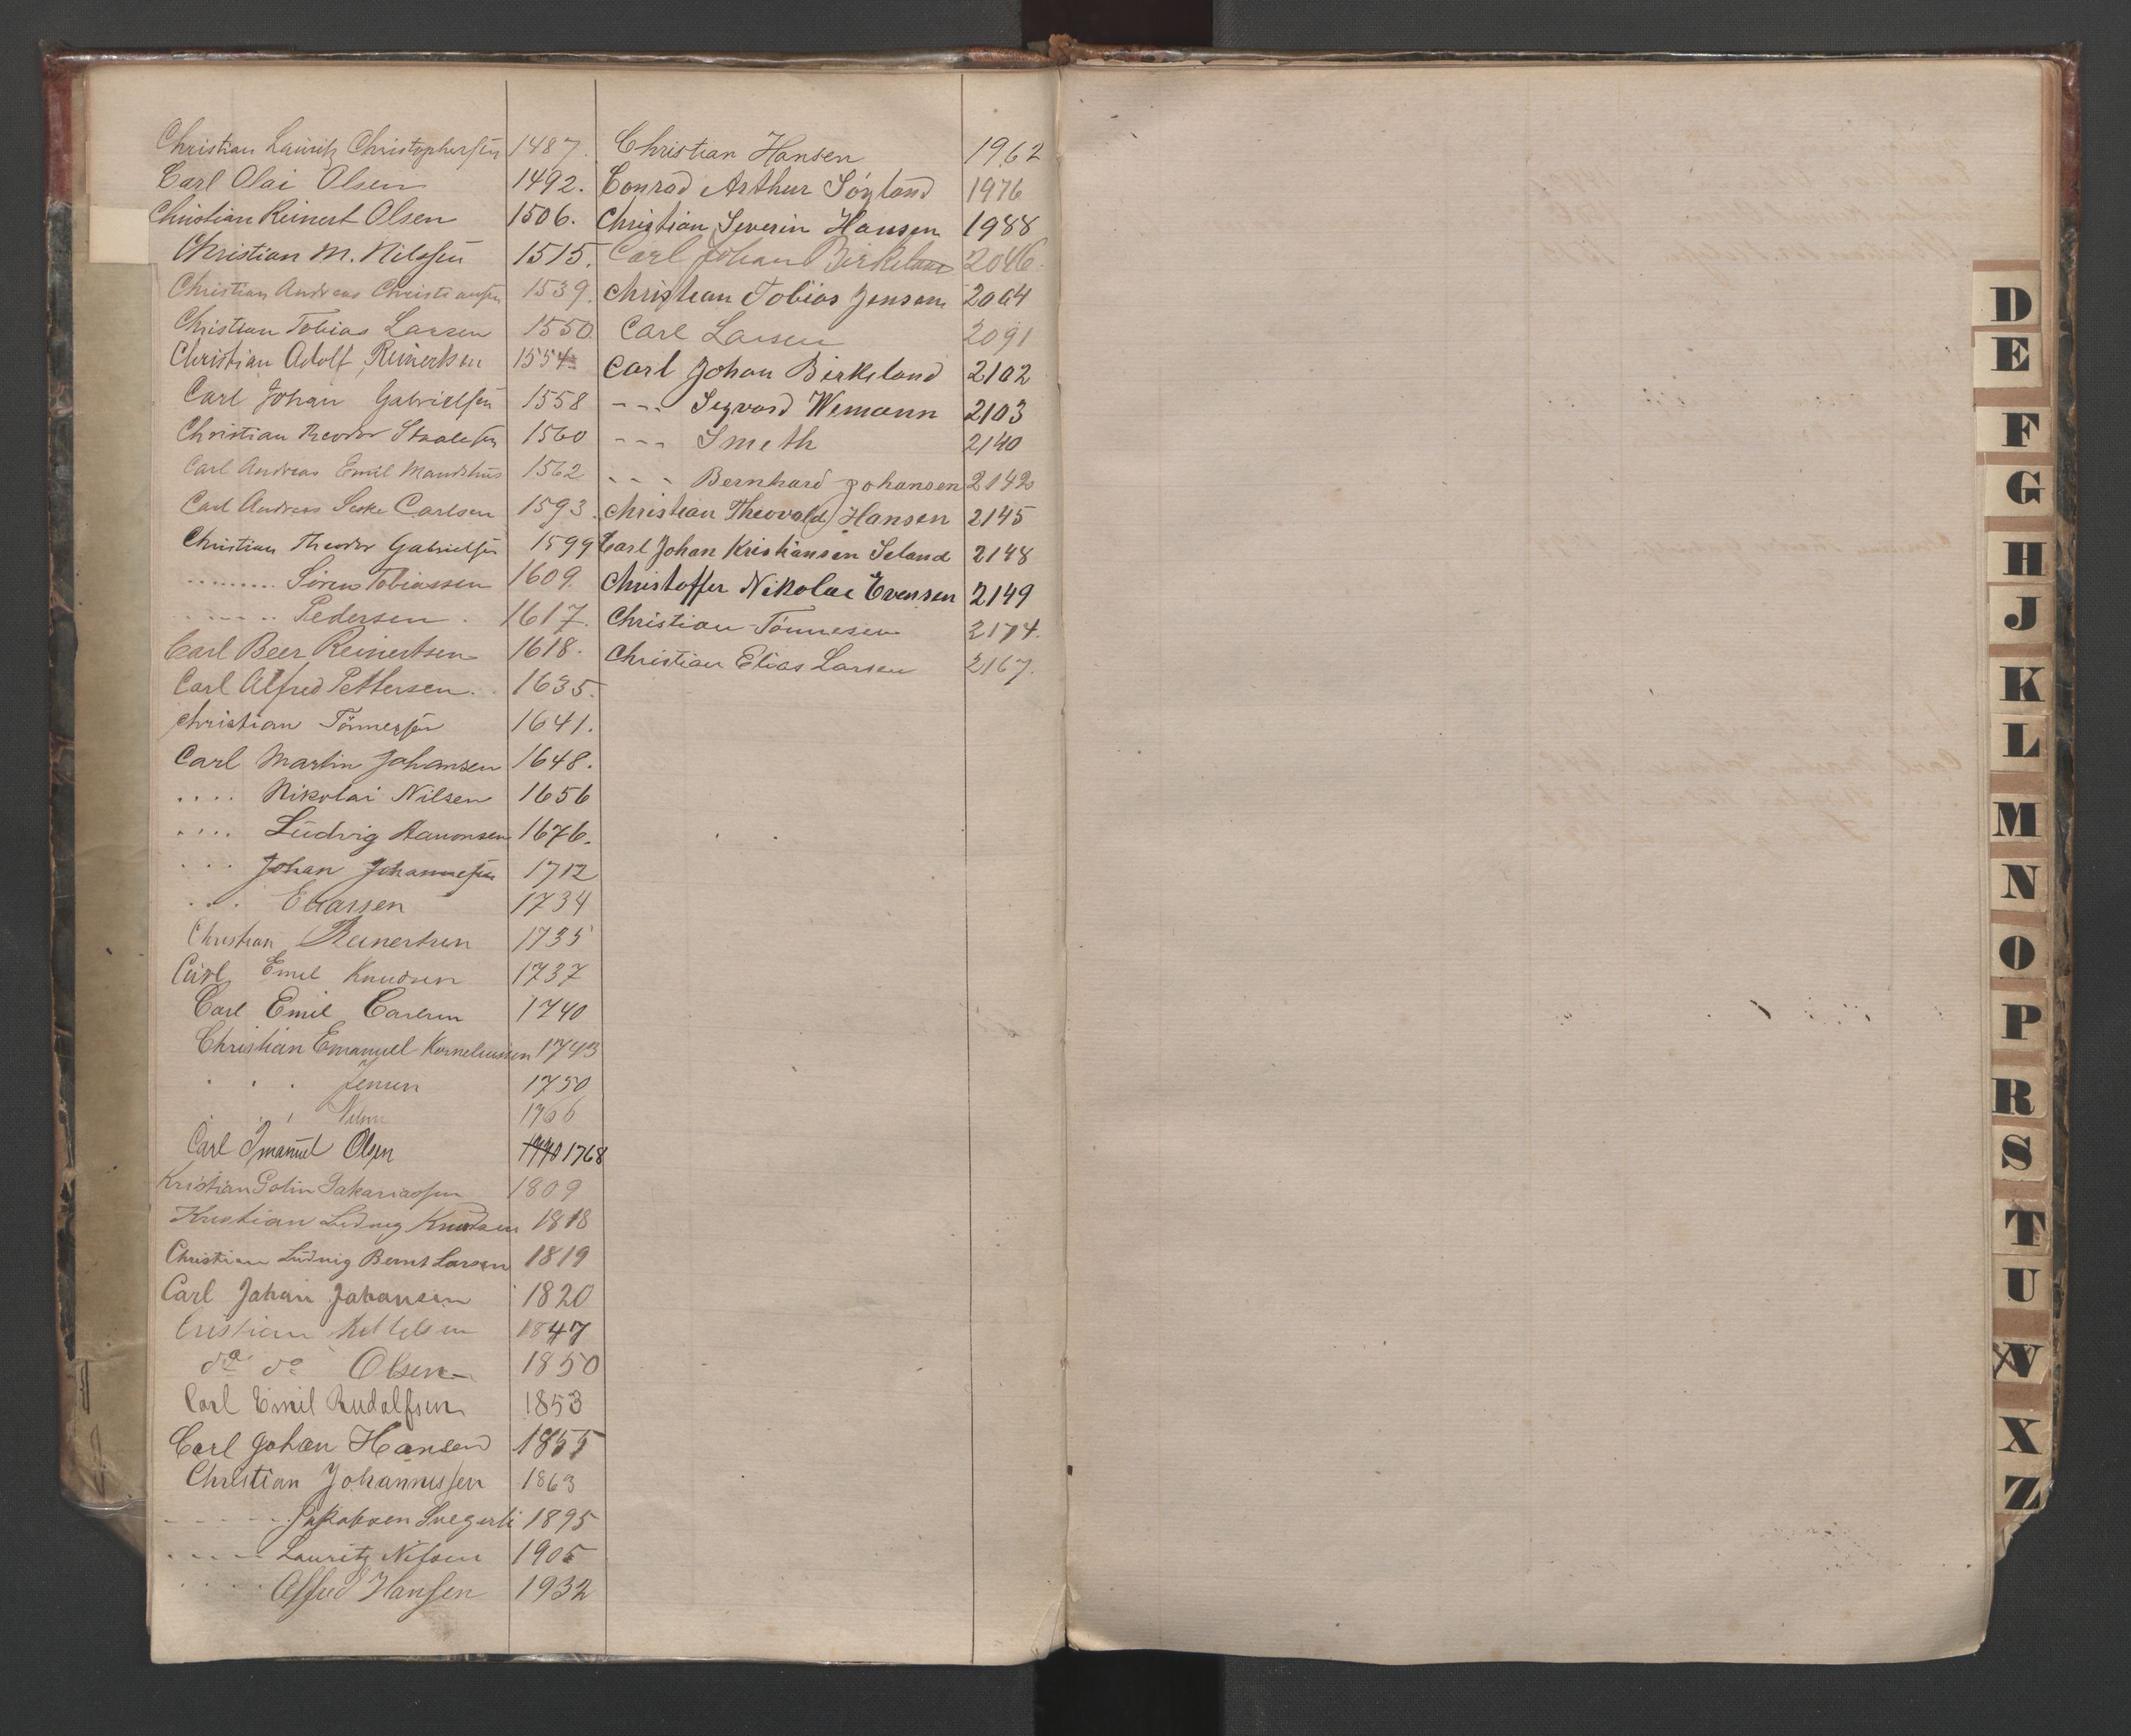 Christian Lauritz Christophersen 1487.
Carl Olai Olsen 1492.
Christian Reinert Olsen 1506.
Christian M. Nilssen 1515.
Christian Andreas Christiansen 1539.
Christian Tobias Larsen 1550.
Christian Adolf Reinertsen 1554
Carl Johan Gabrielsen 1558
Christian Theodor Staalesen 1560
Carl Andreas Emil 1562
Carl Andreas Carlsen 1593.
Christian Theodor Gabrielsen 1599
......... Sörens Tobiassen 1609.
...... Pedersen. 1617.
Carl Beer Reinertsen 1618.
Carl Alfred Pettersen. 1635.
Christian Tönnessen 1641.
Carl Martin Johansen 1648.
.... Nikolai Nilsen 1656
.... Ludvig Aanonsen 1676.
... Johan Johannessen 1712
... Eliassen 1734
Christian Reinertsen 1735
Carl Emil Knudsen 1737
Carl Emil Carlsen 1740
Christian Emanuel Korneliussen 1743
. . . Jensen 1750
. . . Nilsen 1766
Carl Imanuel Olsen 1770 1768
Kristian Sakariassen 1809
Kristian Ludvig Knudsen 1818
Christian Ludvig Bernt Larsen 1819
Carl Johan Johansen 1820
Cristian Kettelsen 1847
do do Olsen 1850
Carl Emil Rudolfsen 1853
Carl Johan Hansen 1855
Christian Johannessen 1863
----- Jakobsen 1895
----- Lauritz Nilsen 1905
..... Alfred Hansen 1932
Christian Hansen 1962
Conrad Arthur 1976
Christian Severin Hansen 1988
Carl Johan Birkeland 2046.
Christian Tobias Jensen 2064
Carl Larsen 2091
Carl Johan Birkeland 2102
--- Segvard Wemann 2103
--- Smeth 2140
--- Bernhard Johansen 2142
Christian Theovald Hansen 2145
Carl Johan Kristiansen Seland 2148
Christoffer Nikolai Evensen 2149
Christian Tönnesen 2174.
Christian Elias Larsen 2167.
D
E
F
G
H
J
K
L
M
N
O
P
R
S
T
U
V
X
Z